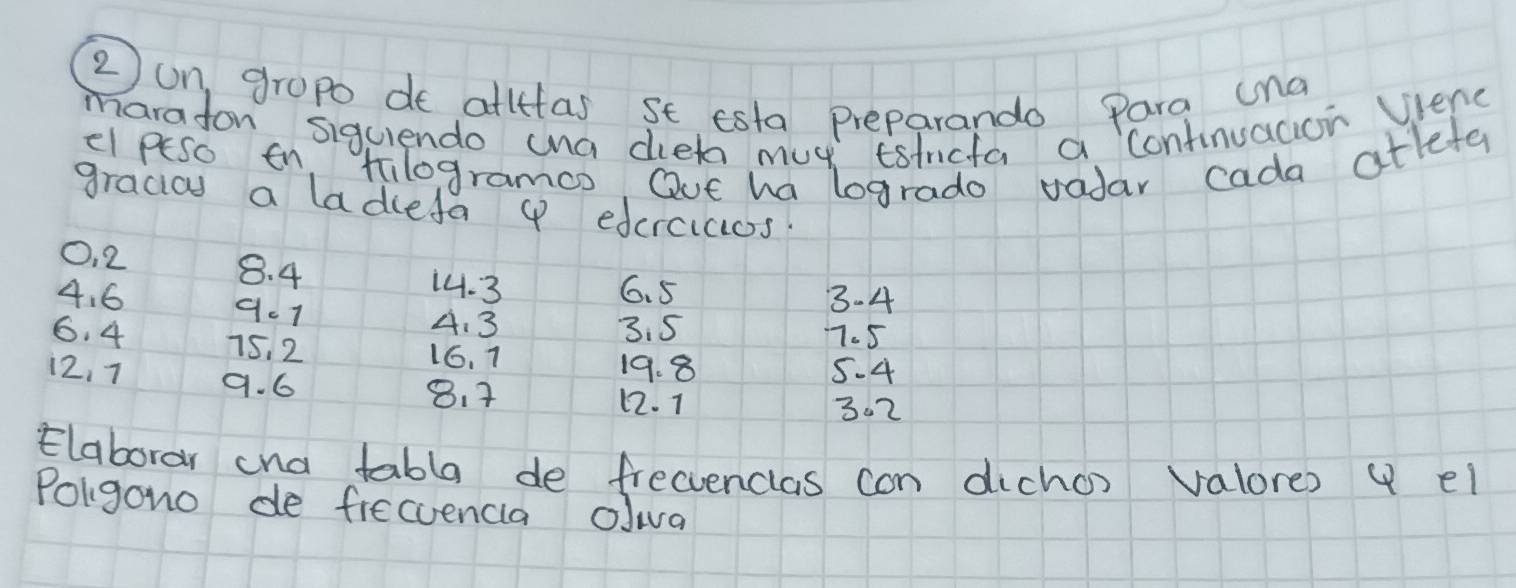 2 un grupo de atletas se esta preparando para una
maraton siguiendo una dieta muy estricta a continuacion viene
el peso en kilogramos que ha logrado vajar cada atleta
gracias a la dieta y ejercicios.
0,2 8.4 14.3 6.5 3.4
4,6 9.1 4,3 3,5 7.5
6.4 15,2 16,1 19.8 5.4
12,1 9.6 8,7 12.1 3.2
Elaborar una tabla de frecuencias con dichos valores y el
Poligono de frecuencia ojiva